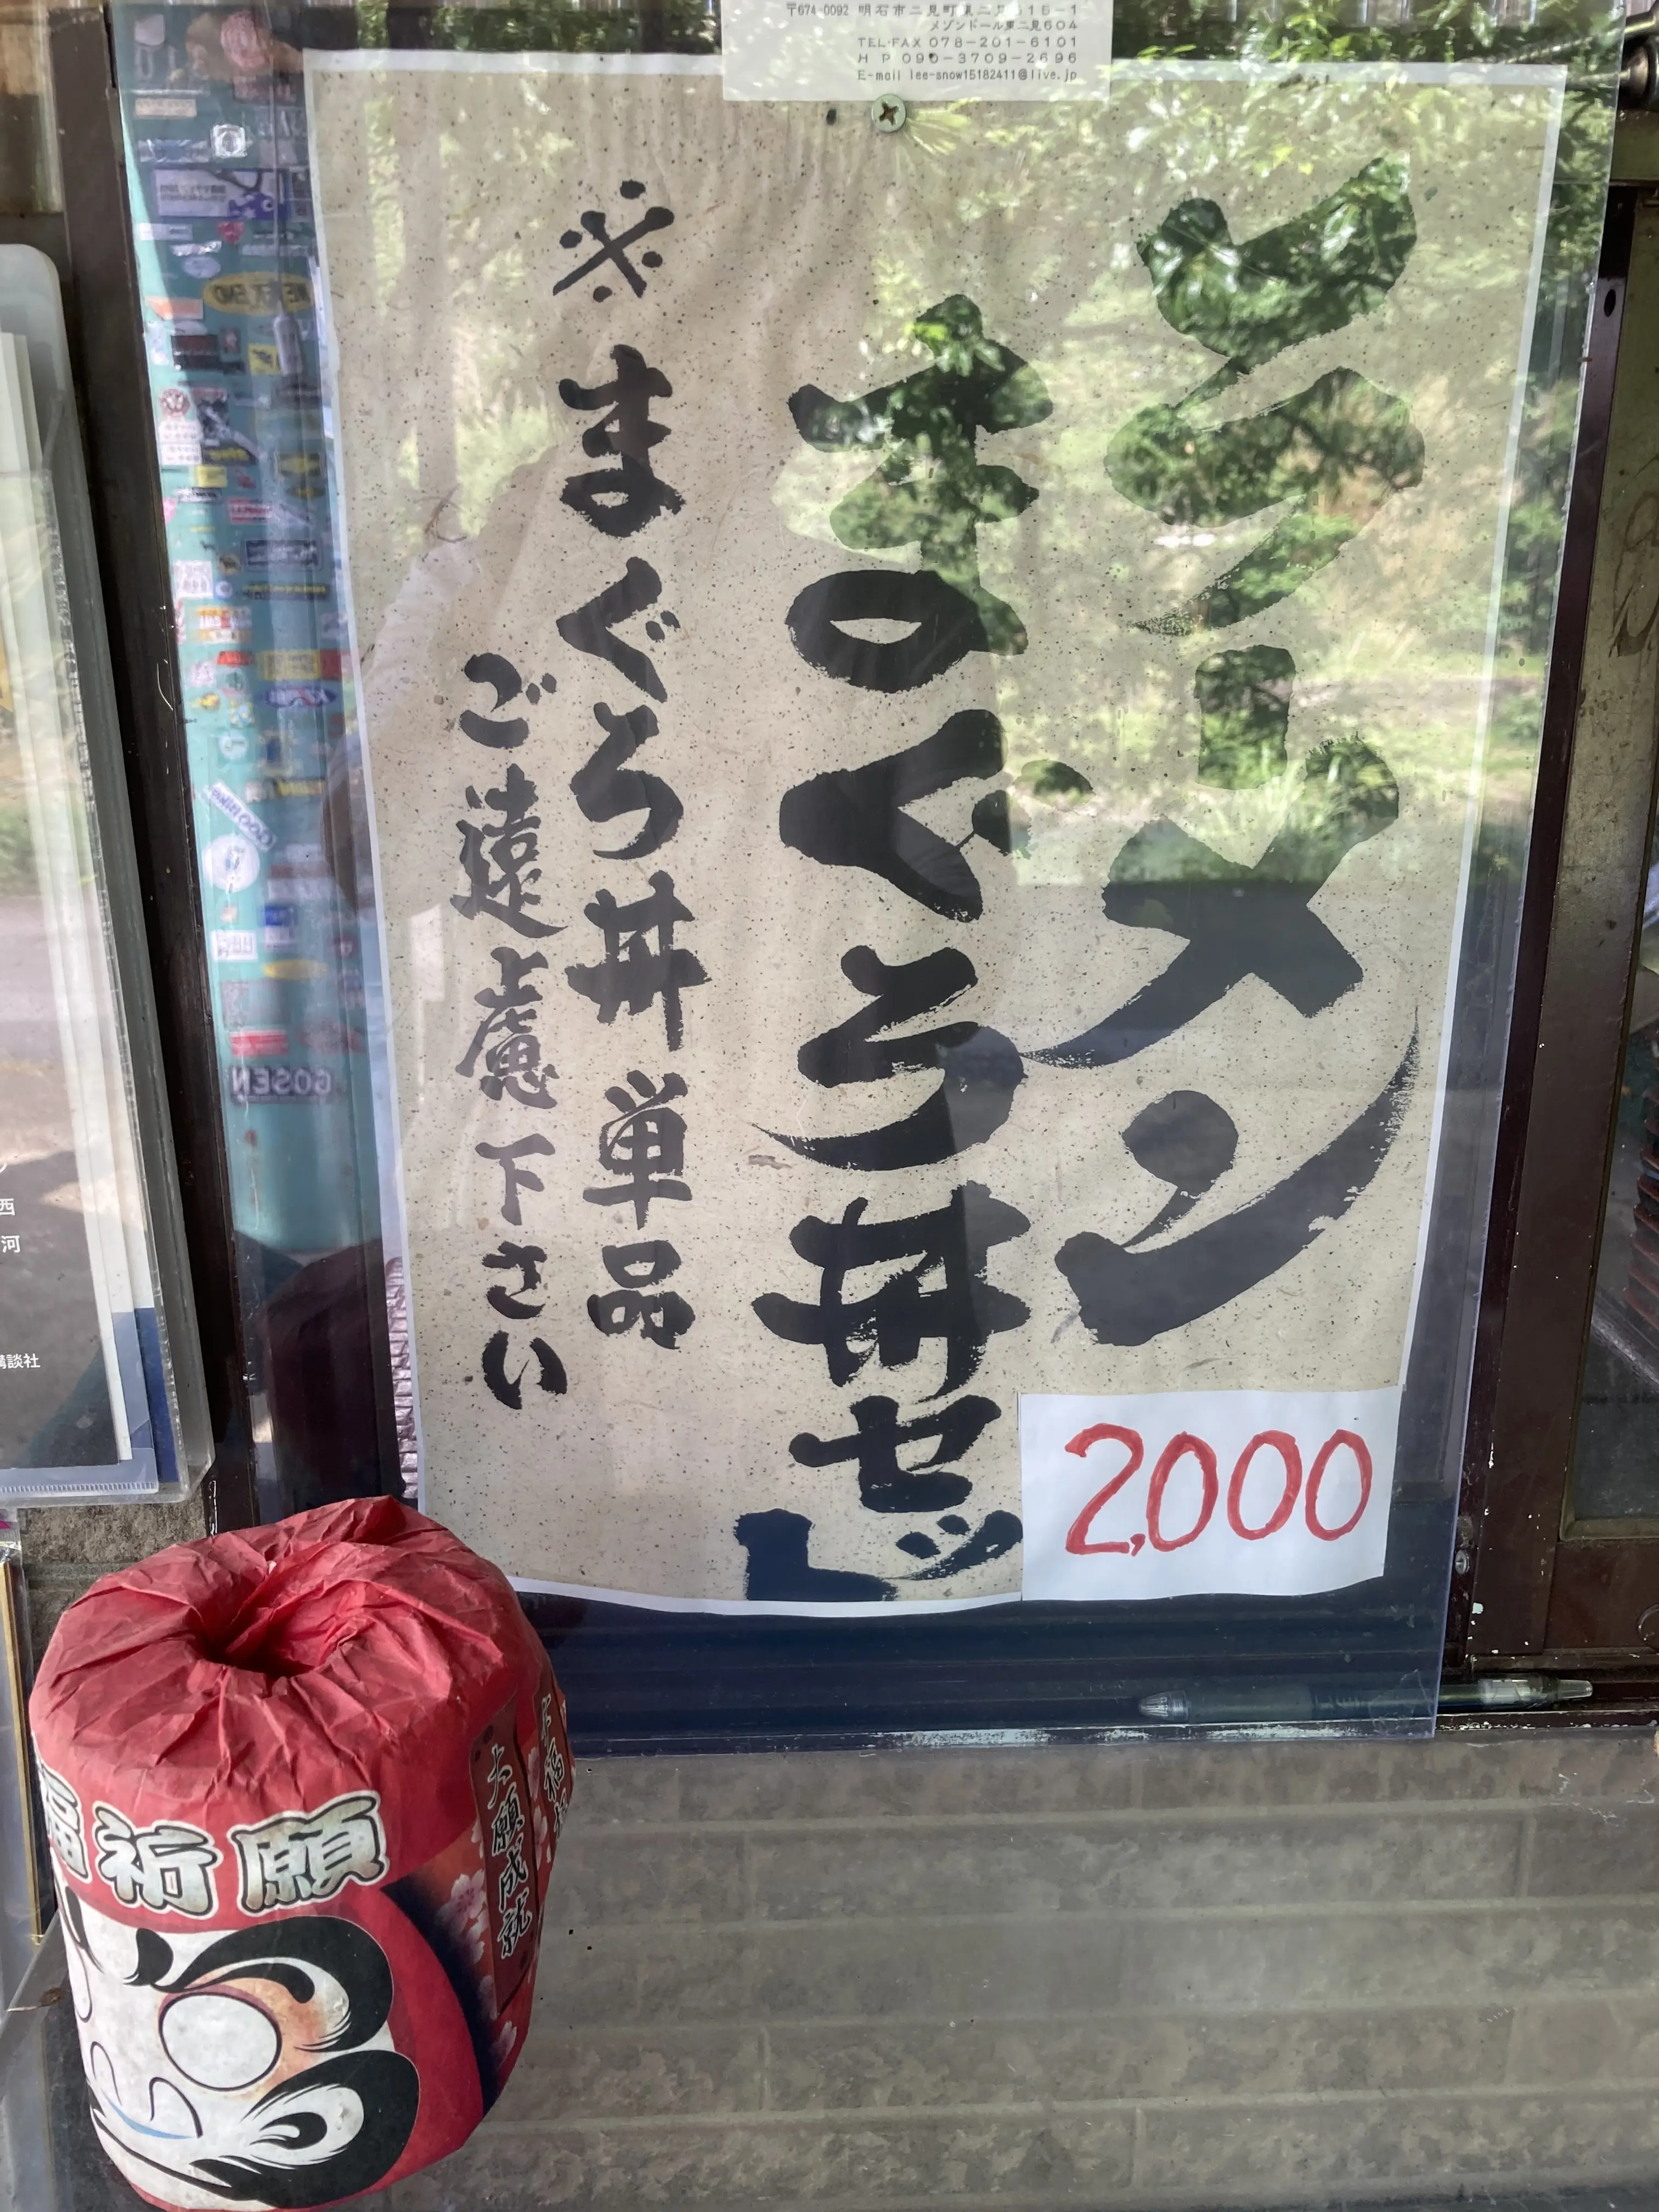 〒674-0092 明石市二見町東二見
メゾンドール東二見604
TEL・FAX 078-201-6101
H P 090-3709-2696
E-mail lee-snow15182411@live.jp
ラーメン
まぐろ丼セット
※まぐろ丼単品
ご遠慮下さい
2,000
GOSEN
西
河
講談社
福祈願
大願成就